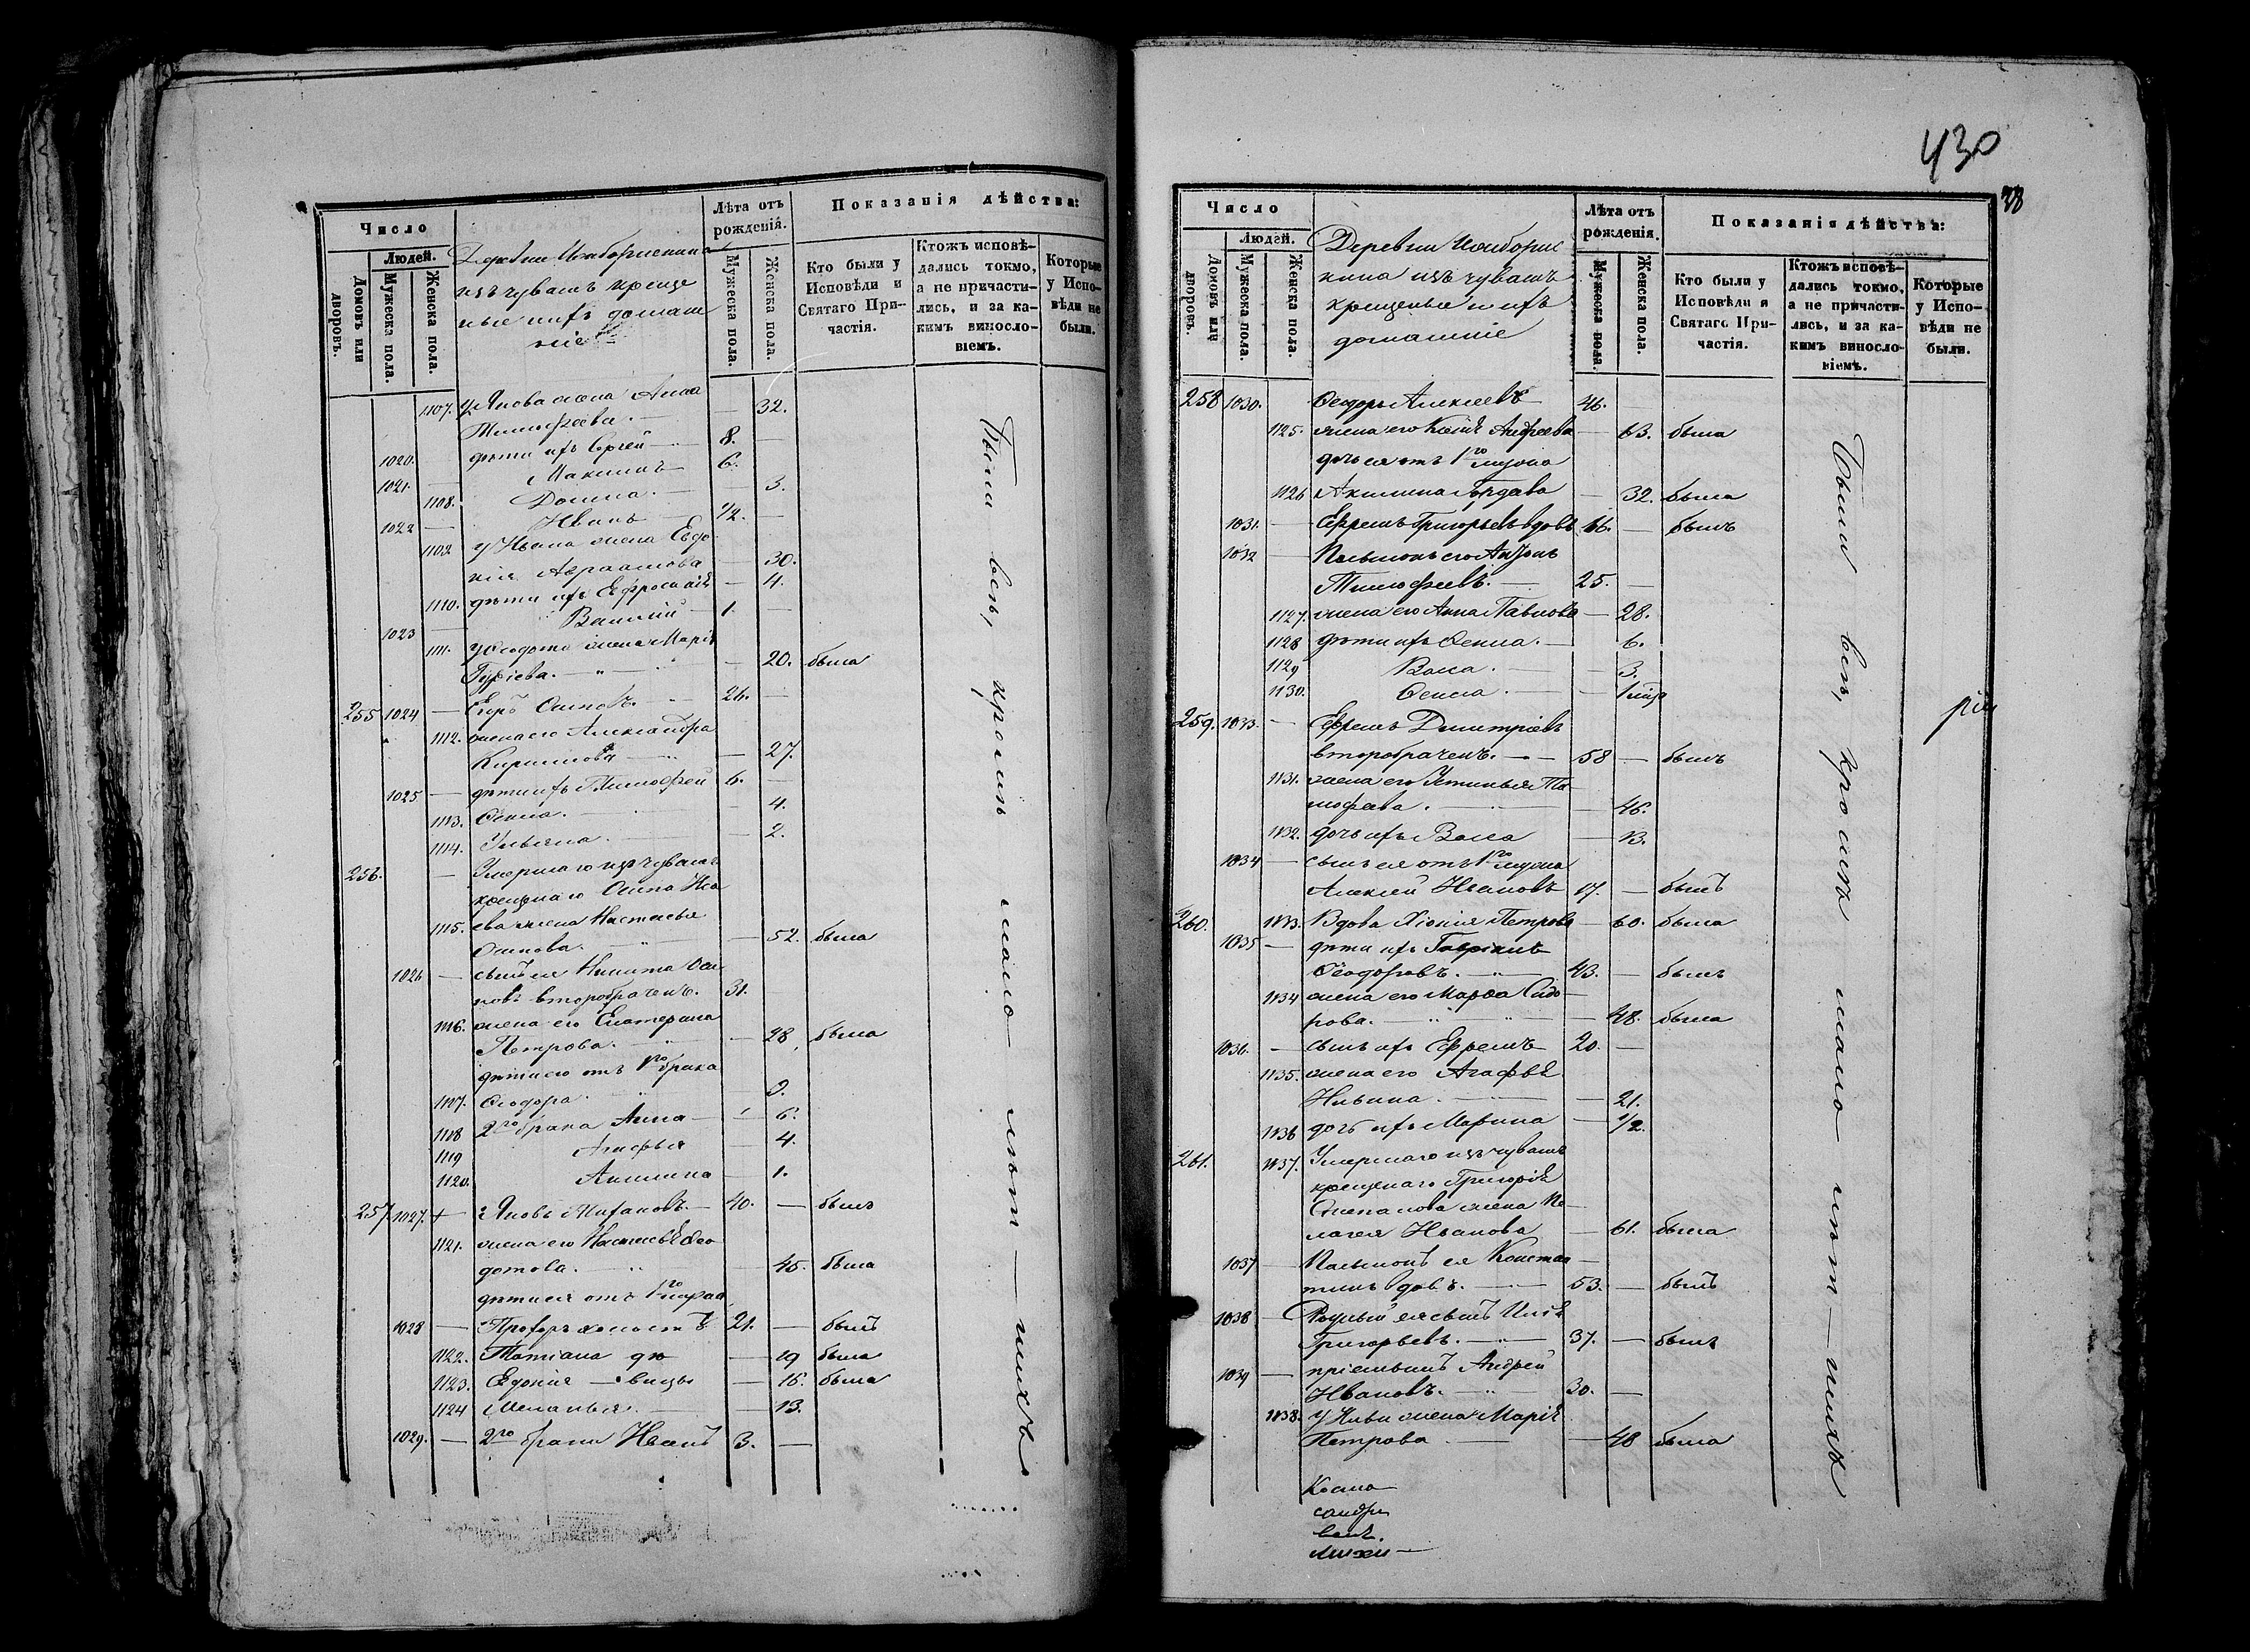 Число
Людей.
Домовъ или дворовъ.
Мужеска пола.
Женска пола.
изъ чувашъ креще
ные и ихъ домаш
ніе
Лѣта отъ рожденія.
Мужеска пола.
Женска пола.
Показанія дѣйства:
Кто были у Исповѣди и Святаго Причастія.
Ктожъ исповѣдались токмо, а не причастились, и за какимъ винословіемъ.
Которые у Исповѣди не были.
1107. у Якова жена Анна
Тимофеева. — 32.
1020. дѣти ихъ Сергей — 8. —
1021. Максимъ 6.
1108. Домна. — 3.
1022 — Иванъ — 1/2. —
у Ивана жена Евдо
кія Авраамова 30.
1110. дѣти ихъ Ефросинія — 4.
1023 — Василій — 1. —
1111. у Ѳедота жена Марія
Гуріева. — 20. была
255 1024 — Егоръ Осиповъ. —
1112. жена его Александра
Кирилова — 27.
1025 — дѣти ихъ Тимофей 6. —
1113. Ѳекла. — 4.
1114. Ульяна. — 2.
256. — Умершаго изъ чувашъ
крещенаго Осипа
1115. жена Настасья
Осипова. — 52. была
1026 — сынъ ея Никита Оси
повъ второбраченъ. 31.
1116. жена его Екатерина
Петрова. — 28 была
дѣти его отъ 1го брака
1117. Ѳеодора. 9.
1118 2го брака Анна — 6.
1119 Агафья — 4.
1120. Акилина — 1.
257. 1027. Яковъ — 40. — былъ
1121. жена его Настасья Ѳео
дотова. — 45. была
дѣти ея отъ 1го
1028 — Прохоръ холостъ 21. — былъ
1122. Татіана дѣ — 19 была
1123. Евдокія — вицы — 16. была
1124 Меланья. — 13.
1029. — 2го брака Иванъ 3. —
Были всѣ, кромѣ мало лѣт — нихъ
430
38
Число
Людей.
Домовъ или дворовъ.
Мужеска пола.
Женска пола.
изъ чувашъ
крещеные и ихъ
домашніе
Лѣта отъ рожденія.
Мужеска пола.
Женска пола.
Показанія дѣйства:
Кто были у Исповѣди и Святаго Причастія.
Ктожъ исповѣдались токмо, а не причастились, и за какимъ винословіемъ.
Которые у Исповѣди не были.
258 1030. Ѳеодоръ Алексеевъ 46. —
1125. жена его Андреева — 63. была
дочь ея отъ 1го мужа
1126 Акилина — 32. была
1031. — Ефремъ Григорьевъ вдовъ 66. — былъ
1032 — Пасынокъ его
Тимофеевъ. — 25. —
1127. жена его Анна Павлова — 28.
1128 дѣти ихъ Ѳекла. — 6.
1129 Васса. — 3.
1130. — 1
259. 1033. — Ефремъ Димитріевъ
второбраченъ. — 58 — былъ
1131. жена его Устинья Ти
мофеева. — 46.
1132. дочь ихъ Васса — 13.
1034 — сынъ ея отъ 1го мужа
Алексей Ивановъ 17. — былъ
260. 1133. Вдова Хіонія Петрова — 60. была
1035 — дѣти ихъ Гавріилъ
Ѳеодоровъ. — 43. — былъ
1134 жена его Марѳа Сидо
рова. — 48. была
1036. — сынъ ихъ Ефремъ 20. —
1135. жена его Агафья
Ильина. — 21.
1136 дочь ихъ Марина — 1/2.
261. 1137. Умершаго изъ чувашъ
крещенаго Григорія
Степанова жена Пе
лагея Иванова — 61. была
1037 — Пасынокъ ея Констан
тинъ вдовъ. — 53. — былъ
1038 — Родный ея сынъ Илья
Григорьевъ. — 37. — былъ
1039 — пріемышъ Андрей
Ивановъ. — 30. —
1138. у Ильи жена Марія
Петрова — 48 была
Были всѣ, кромѣ мало лѣт — нихъ